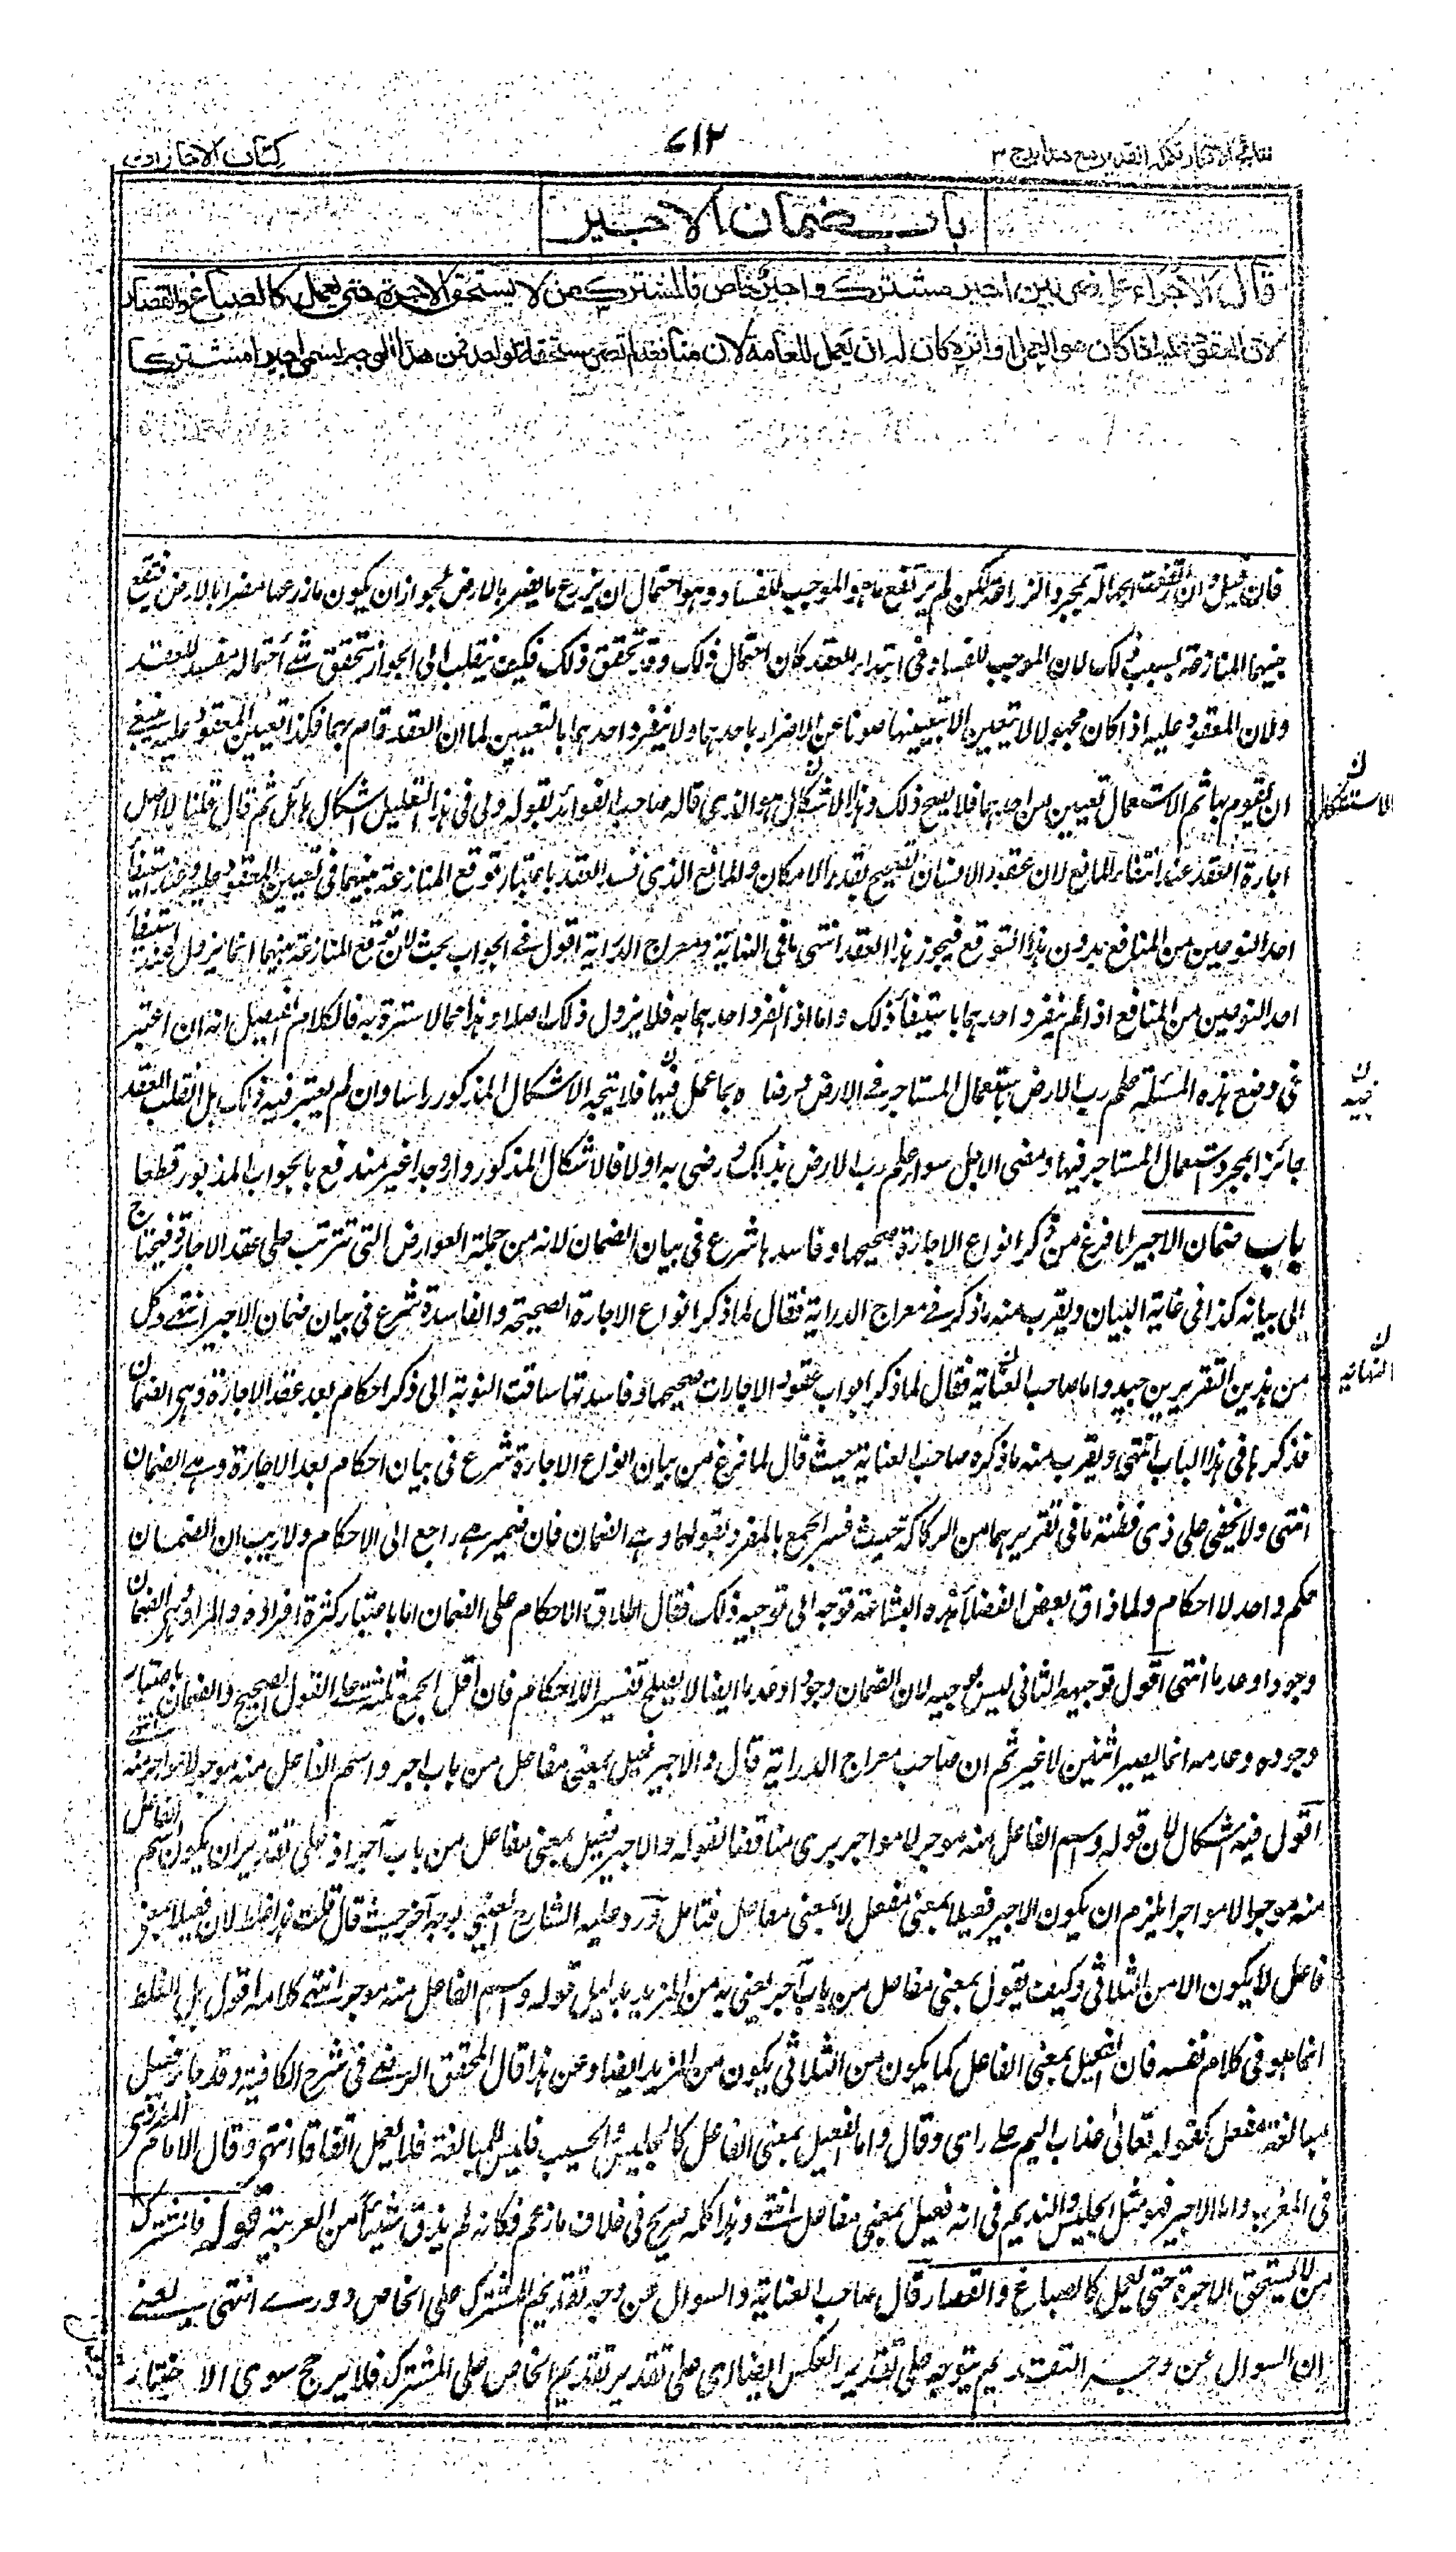 نتائج الافكار تكملة فتح القدير مع هدايه ج ٣
٧١٢
كتاب الاجارات
باب ضمان الاجير
قال الاجراء على ضربين اجير مشترك واجير خاص فالمشترك من لا يستحق الاجرة حتى يعمل كالصباغ والقصار
لان المعقود عليه اذا كان هو العمل او اثره كان له ان يعمل للعامة لان منافعه لم تصر مستحقة لواحد فمن هذا الوجه يسمى اجيرا مشتركا
فان قيل ان ارتفعت الجهالة بمجرد الزراعة لكن لم يرتفع ما هو الموجب للفساد وهو احتمال ان يزرع ما يضر بالارض لجواز ان يكون ما زرعها مضرا بالارض فتقع
بينهما المنازعة بسبب ذلك لان الموجب للفساد فى ابتداء العقد كان احتمال ذلك وقد تحقق ذلك فكيف ينقلب الى الجواز بتحقق شئ احتماله مفسد للعقد
ولان المعقود عليه اذا كان مجهولا لا يتعين الا بتعيينهما صونا عن الاضرار باحدهما ولا ينفرد احدهما بالتعيين لما ان العقد قام بهما فكذا تعيين المعقود عليه ينبغى
ان يقوم بهما ثم الاستعمال تعيين من احدهما فلا يصح ذلك وهذا الاشكال هو الذى قاله صاحب الفوائد بقوله ولى فى هذا التعليل اشكال هائل ثم قال قلنا الاصل
اجازة العقد عند انتفاء المانع لان عقود الانسان تصحح بقدر الامكان والمانع الذى فسد العقد باعتبار توقع المنازعة بينهما فى تعيين المعقود عليه وعند استيفاء
احد النوعين من المنافع يدون هذا التوقع فيجوز هذا العقد انتهى ما فى النهاية ومعراج الدراية اقول فى الجواب بحث لان توقع المنازعة بينهما انما يزول عند استيفاء
احد النوعين من المنافع اذا لم ينفرد احدهما باستيفاء ذلك واما اذا انفرد احدهما به فلا يزول ذلك اصلا وهذا مما لا سترة به فالكلام الفيصل انه ان اعتبر
فى وضع هذه المسئلة علم رب الارض باستعمال المستاجر فى الارض ورضاه بما عمل فيها فلا يتجه الاشكال المذكور راسا وان لم يعتبر فيه ذلك بل انقلب العقد
جائزا بمجرد استعمال المستاجر فيها ومضى الاجل سواء علم رب الارض بذلك ورضى به اولا فالاشكال المذكور وارد جدا غير مندفع بالجواب المذبور قطعا
باب ضمان الاجير لما فرغ من ذكر انواع الاجارة صحيحها وفاسدها شرع فى بيان الضمان لانه من جملة العوارض التى تترتب على عقد الاجارة فيحتاج
الى بيانه كذا فى غاية البيان ويقرب منه ما ذكر فى معراج الدراية فقال لما ذكر انواع الاجارة الصحيحة والفاسدة شرع فى بيان ضمان الاجير انتهى وكل
من هذين التقريرين جيد واما صاحب النهاية فقال لما ذكر ابواب عقود الاجارات صحيحها وفاسدتها ساقت النوبة الى ذكر احكام بعد عقد الاجارة وهى الضمان
فذكرها فى هذا الباب انتهى ويقرب منه ما ذكره صاحب العناية حيث قال لما فرغ من بيان انواع الاجارة شرع فى بيان احكام بعد الاجارة وهى الضمان
انتهى ولا يخفى على ذى فطنة ما فى تقريرهما من الركاكة حيث فسر الجمع بالمفرد بقولهما وهى الضمان فان ضمير هى راجع الى الاحكام ولا ريب ان الضمان
حكم واحد لا احكام ولما ذاق بعض الفضلاء هذه البشاعة توجه الى توجيه ذلك فقال اطلاق الاحكام على الضمان اما باعتبار كثرة افراده او المراد وهى الضمان
وجودا وعدما انتهى اقول توجيهه الثانى ليس بوجيه لان الضمان وجودا وعدما ايضا لا يصلح تفسيرا للاحكام فان اقل الجمع ثلثة على القول الصحيح والضمان باعتبار
وجوده وعدمه انما يصير اثنين لا غير ثم ان صاحب معراج الدراية قال والاجير فعيل بمعنى مفاعل من باب اجر واسم الفاعل منه موجر لا مواجر انتهى
اقول فيه اشكال لان قوله واسم الفاعل منه موجر لا مواجر يرى مناقضا لقوله والاجير فعيل بمعنى مفاعل من باب آجر اذ على تقدير ان يكون اسم الفاعل
منه موجرا لا مواجرا يلزم ان يكون الاجير فعيلا بمعنى مفعل لا بمعنى مفاعل فتامل ورد عليه الشارح العينى بوجه آخر حيث قال قلت هذا غلط لان فعيلا بمعنى
فاعل لا يكون الا من الثلاثى وكيف يقول بمعنى مفاعل من باب آجر يعنى به من المزيد بدليل قوله واسم الفاعل منه موجر انتهى كلامه اقول بل الغلط
انما هو فى كلام نفسه فان الفعيل بمعنى الفاعل كما يكون من الثلاثى يكون من المزيد ايضا وعن هذا قال المحقق الرضى فى شرح الكافية وقد جاء فعيل
مبالغة مفعل كقوله تعالى عذاب اليم على راى وقال واما الفعيل بمعنى المفاعل كالجليس والحسيب فليس للمبالغة فلا يعمل اتفاقا انتهى وقال الامام المطرزى
فى المغرب واما الاجير فهو مثل الجليس والنديم فى انه فعيل بمعنى مفاعل انتهى وهذا كله صريح فى خلاف ما زعم فكانه لم يذق شيئا من العربية قوله فالمشترك
من لا يستحق الاجرة حتى يعمل كالصباغ والقصار قال صاحب العناية والسوال عن وجه تقديم المشترك على الخاص دورى انتهى يعنى
ان السوال عن وجه التقديم يتوجه على تقدير العكس ايضا اى على تقدير تقديم الخاص على المشترك فلا يرجح سوى الاختيار